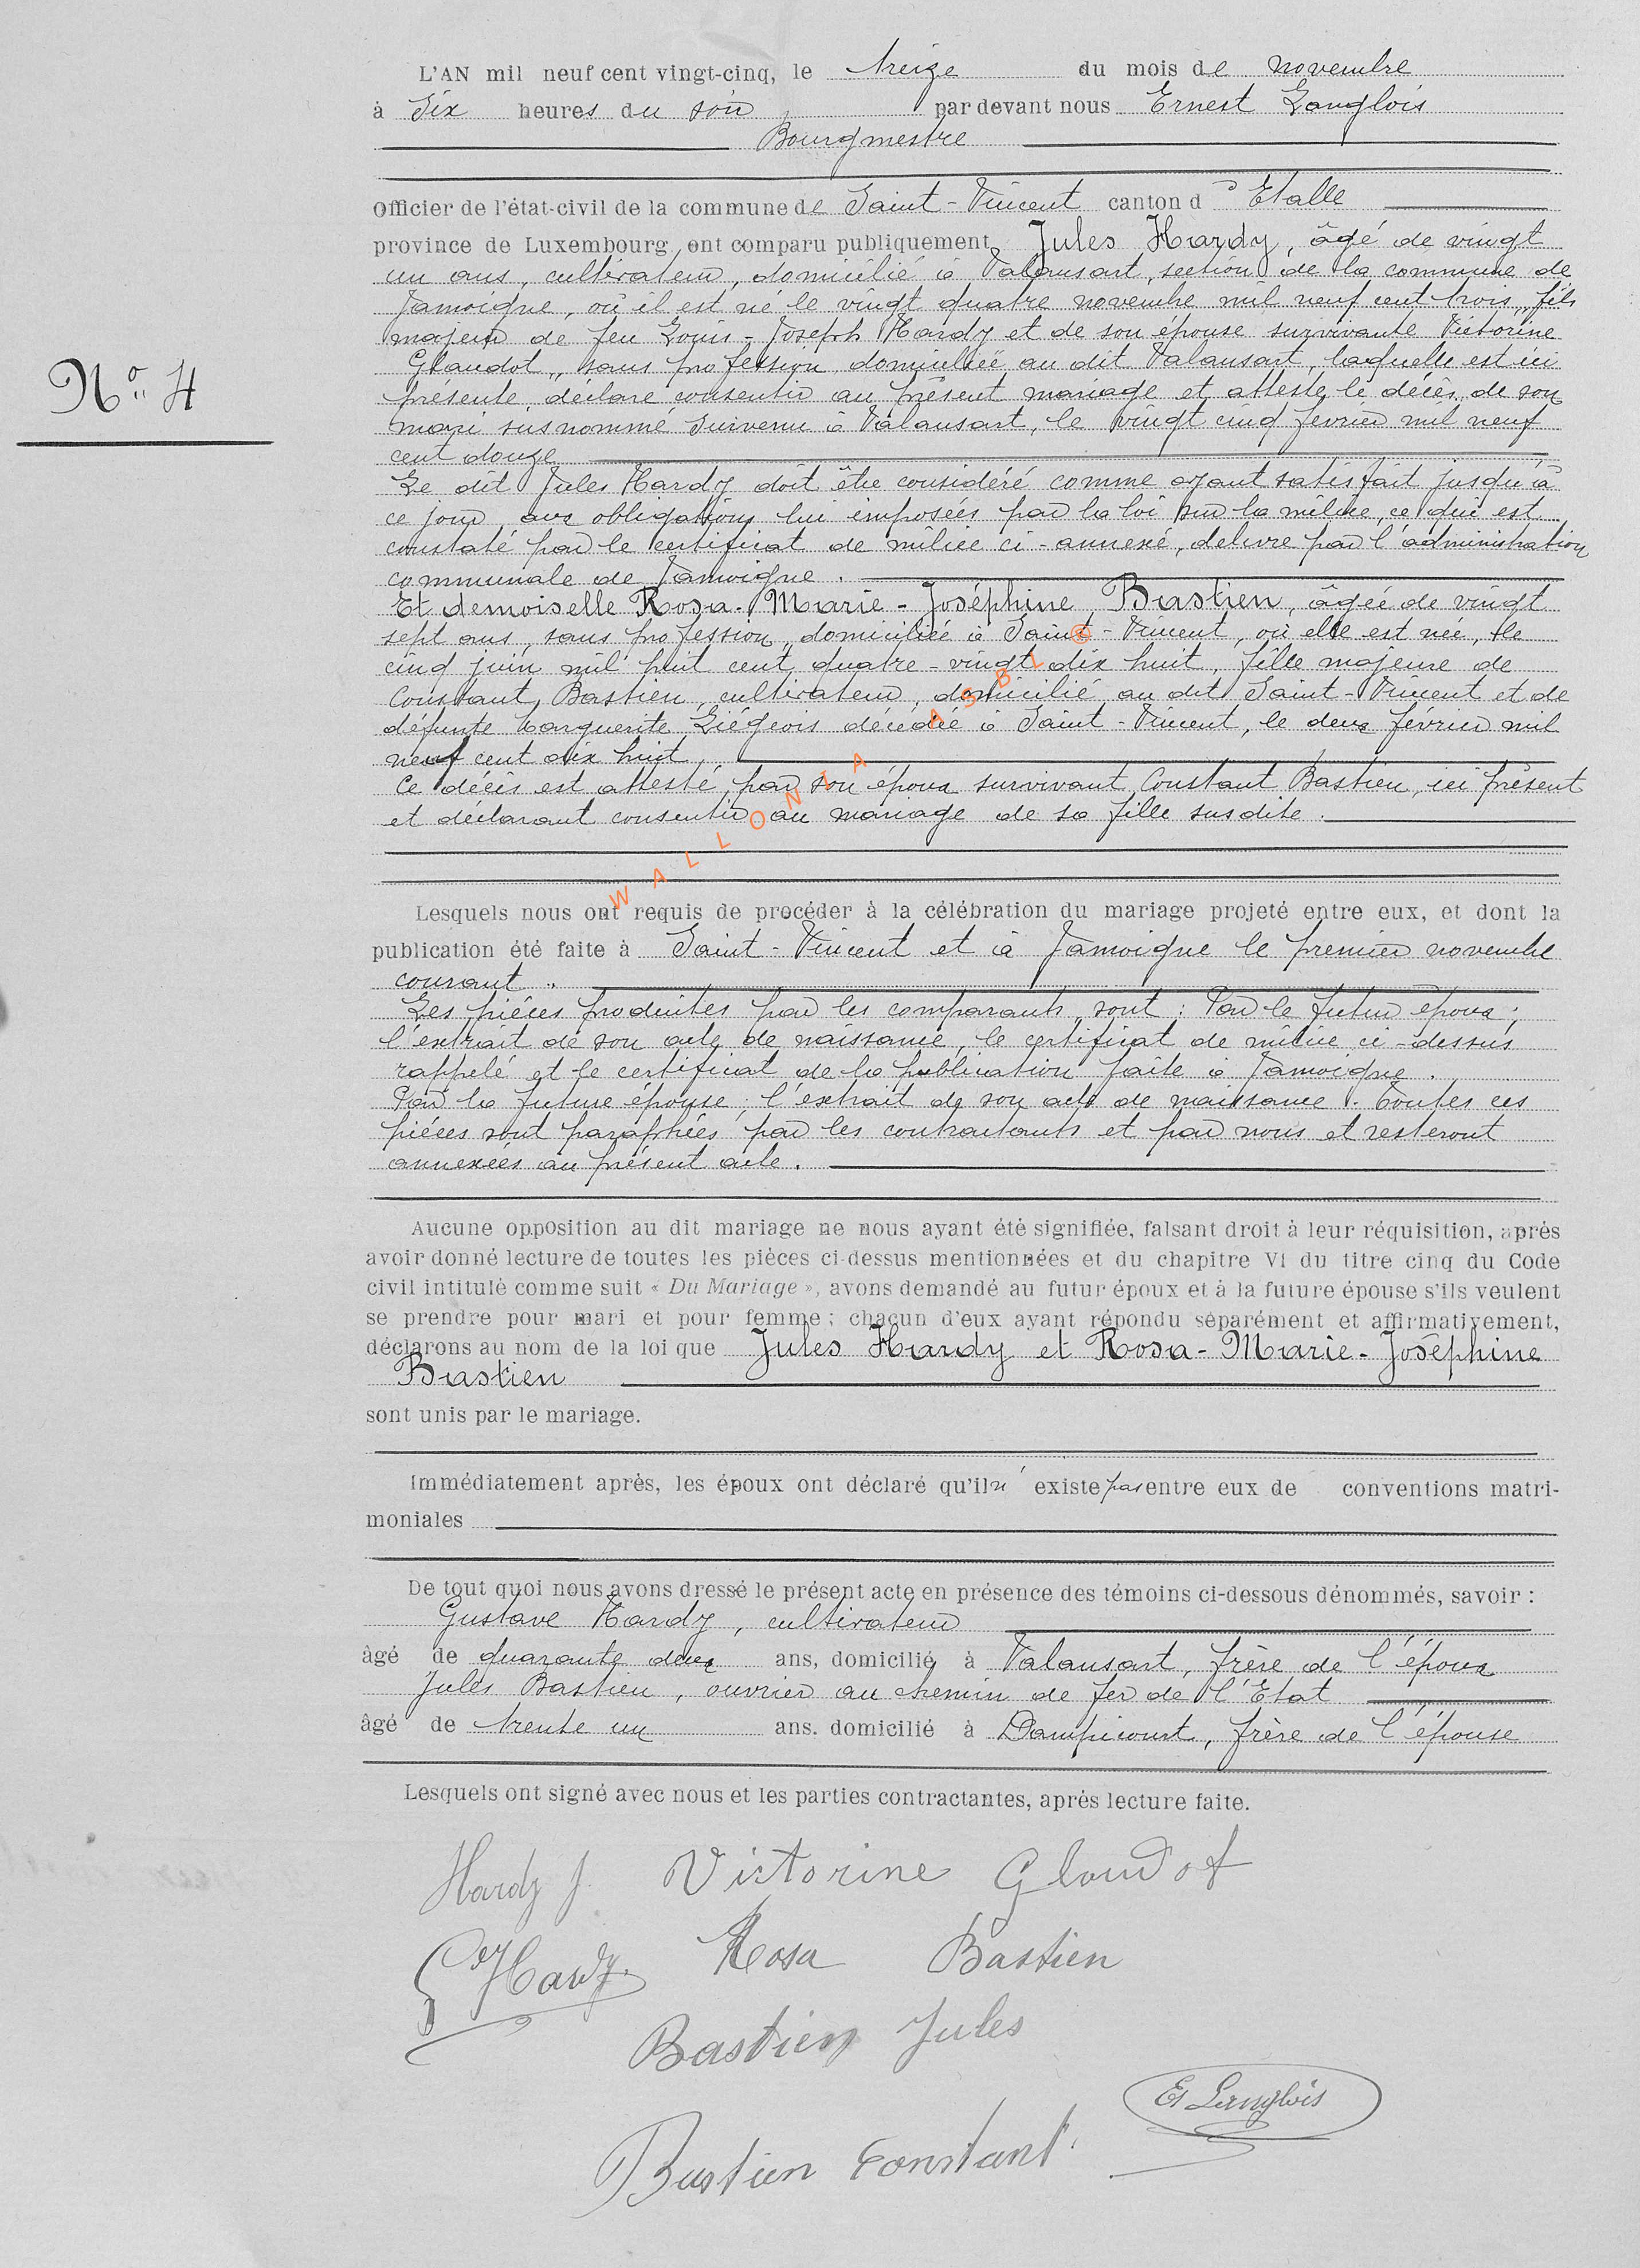 L'AN mil neuf cent vingt-cinq, le treize du mois de novembre
à Six heures du soir par devant nous Ernest Langlois
Bourgmestre
Officier de l'état-civil de la commune de Saint-Vincent canton d'Etalle
province de Luxembourg ont comparu publiquement Jules Hardy, âgé de vingt
un ans, cultivateur, domicilié à Valansart, section de la commune de
Jamoigne, où il est né le vingt quatre novembre mil neuf cent trois, fils
majeur de feu Louis-Joseph Hardy et de son épouse survivante Victorine
Glaudot, sans profession domiciliée au dit Valansart, laquelle est ici
N° 4
présente, déclare consentir au présent mariage et atteste le décès de son
mari susnommé survenu à Valansart, le vingt cinq février mil neuf
cent douze
Le dit Jules Hardy doit être considéré comme ayant satisfait jusqu'à
ce jour aux obligations lui imposées par la loi sur la milice, ce qui est
constaté par le certificat de milice ci-annexé, délivré par l'administration
communale de Jamoigne.
Et demoiselle Rosa-Marie-Joséphine Bastien, âgée de vingt
sept ans, sans profession, domiciliée à Saint-Vincent, où elle est née, le
cinq juin mil huit cent quatre-vingt dix huit, fille majeure de
Constant Bastien, cultivateur, domicilié au dit Saint-Vincent et de
défunte Marguerite Liégeois décédée à Saint-Vincent, le deux février mil
neuf cent dix huit.
Ce décès est attesté par son époux survivant Constant Bastien, ici présent
et déclarant consentir au mariage de sa fille susdite.
WALLONIA ASBL ®
Lesquels nous ont requis de procéder à la célébration du mariage projeté entre eux, et dont la
publication été faite à Saint-Vincent et à Jamoigne le premier novembre
courant.
Les pièces produites par les comparants sont : Par le futur époux ;
l'extrait de son acte de naissance, le certificat de milice ci-dessus
rappelé et le certificat de la publication faite à Jamoigne.
Par la future épouse : l'extrait de son acte de naissance. Toutes ces
pièces sont paraphées par les contractants et par nous et resteront
annexées au présent acte.
Aucune opposition au dit mariage ne nous ayant été signifiée, faisant droit à leur réquisition, après
avoir donné lecture de toutes les pièces ci-dessus mentionnées et du chapitre VI du titre cinq du Code
civil intitulé comme suit « Du Mariage », avons demandé au futur époux et à la future épouse s'ils veulent
se prendre pour mari et pour femme ; chacun d'eux ayant répondu séparément et affirmativement,
déclarons au nom de la loi que Jules Hardy et Rosa-Marie-Joséphine
Bastien
sont unis par le mariage.
Immédiatement après, les époux ont déclaré qu'il n'existe pas entre eux de conventions matri-
moniales
De tout quoi nous avons dressé le présent acte en présence des témoins ci-dessous dénommés, savoir :
Gustave Hardy, cultivateur
âgé de quarante deux ans, domicilié à Valansart, frère de l'époux
Jules Bastien, ouvrier au chemin de fer de l'Etat
âgé de trente un ans. domicilié à Dampicourt, frère de l'épouse
Lesquels ont signé avec nous et les parties contractantes, après lecture faite.
Hardy J. Victorine Glaudot
G Hardy. Rosa Bastien
Bastien Jules
Es Langlois
Bastien Constant.